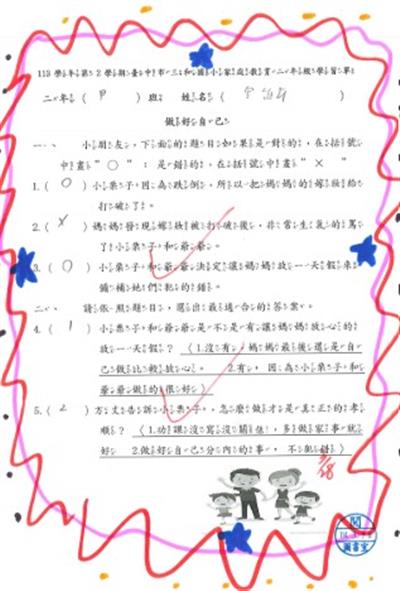 113學年第2學期臺中市三和國小家庭教育二年級學習單
二年(甲)班 姓名( )
做好自己
一、 小朋友,下面的題目如果是對的,在括號
中畫"○";是錯的,在括號中畫"×"
1.(○)小樂子因為跌倒,所以把媽媽的嫁妝給
打破了。
2.(×)媽媽發現嫁妝被打破後,非常生氣的罵
了小樂子和爺爺。
3.(○)小樂子和爺爺決定讓媽媽放一天假來
彌補她們犯的錯。
二、 請依照題目,選出最適合的答案。
4.(1)小樂子和爺爺是不是有讓媽媽放心的
放一天假?(1.沒有,媽媽最後還是自
己做比較放心。 2.有,因為小樂子和
爺爺做的很好)
5.(2)方丈告訴小樂子,怎麼做才是真正的孝
順?(1.功課沒寫沒關係,多做家事就
好 2.做好自己分內的事,不與錯)
3/28
閱
圖書室